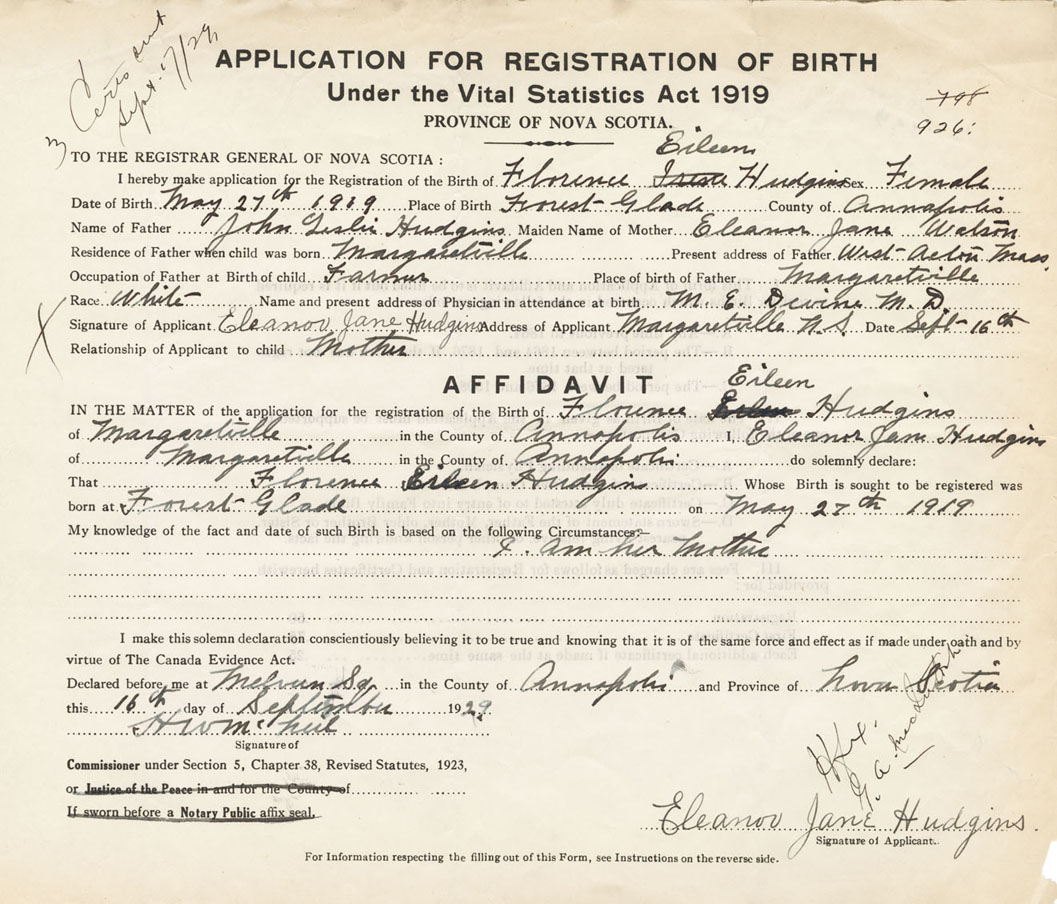 Certs sent
Sept. 17/29,
3
APPLICATION FOR REGISTRATION OF BIRTH
Under the Vital Statistics Act 1919
PROVINCE OF NOVA SCOTIA.
798
926:
Eileen
TO THE REGISTRAR GENERAL OF NOVA SCOTIA :
I hereby make application for the Registration of the Birth of Florence Irene Hudgins Sex Female
Date of Birth May 27th 1919 Place of Birth Forest Glade County of Annapolis
Name of Father John Leslie Hudgins Maiden Name of Mother Eleanor Jane Watson
Residence of Father when child was born Margaretville Present address of Father West Acton Mass.
Occupation of Father at Birth of child Farmer Place of birth of Father Margaretville
Race White Name and present address of Physician in attendance at birth M. E. Devine M. D.
X
Signature of Applicant Eleanor Jane Hudgins Address of Applicant Margaretville N. S. Date Sept 16th
Relationship of Applicant to child Mother
AFFIDAVIT
Eileen
IN THE MATTER of the application for the registration of the Birth of Florence Hudgins
of Margaretville in the County of Annapolis I, Eleanor Jane Hudgins
of Margaretville in the County of Annapolis do solemnly declare:
That Florence Eileen Hudgins Whose Birth is sought to be registered was
born at Forest Glade on May 27th 1919
My knowledge of the fact and date of such Birth is based on the following Circumstances:—
I am her Mother
I make this solemn declaration conscientiously believing it to be true and knowing that it is of the same force and effect as if made under oath and by
virtue of The Canada Evidence Act.
Declared before me at Melvern Sq in the County of Annapolis and Province of Nova Scotia
this 16th day of September 1929.
H W McNeil
Signature of
Commissioner under Section 5, Chapter 38, Revised Statutes, 1923,
or Justice of the Peace in and for the County of
If sworn before a Notary Public affix seal.
Eleanor Jane Hudgins.
Signature of Applicant.
For Information respecting the filling out of this Form, see Instructions on the reverse side.